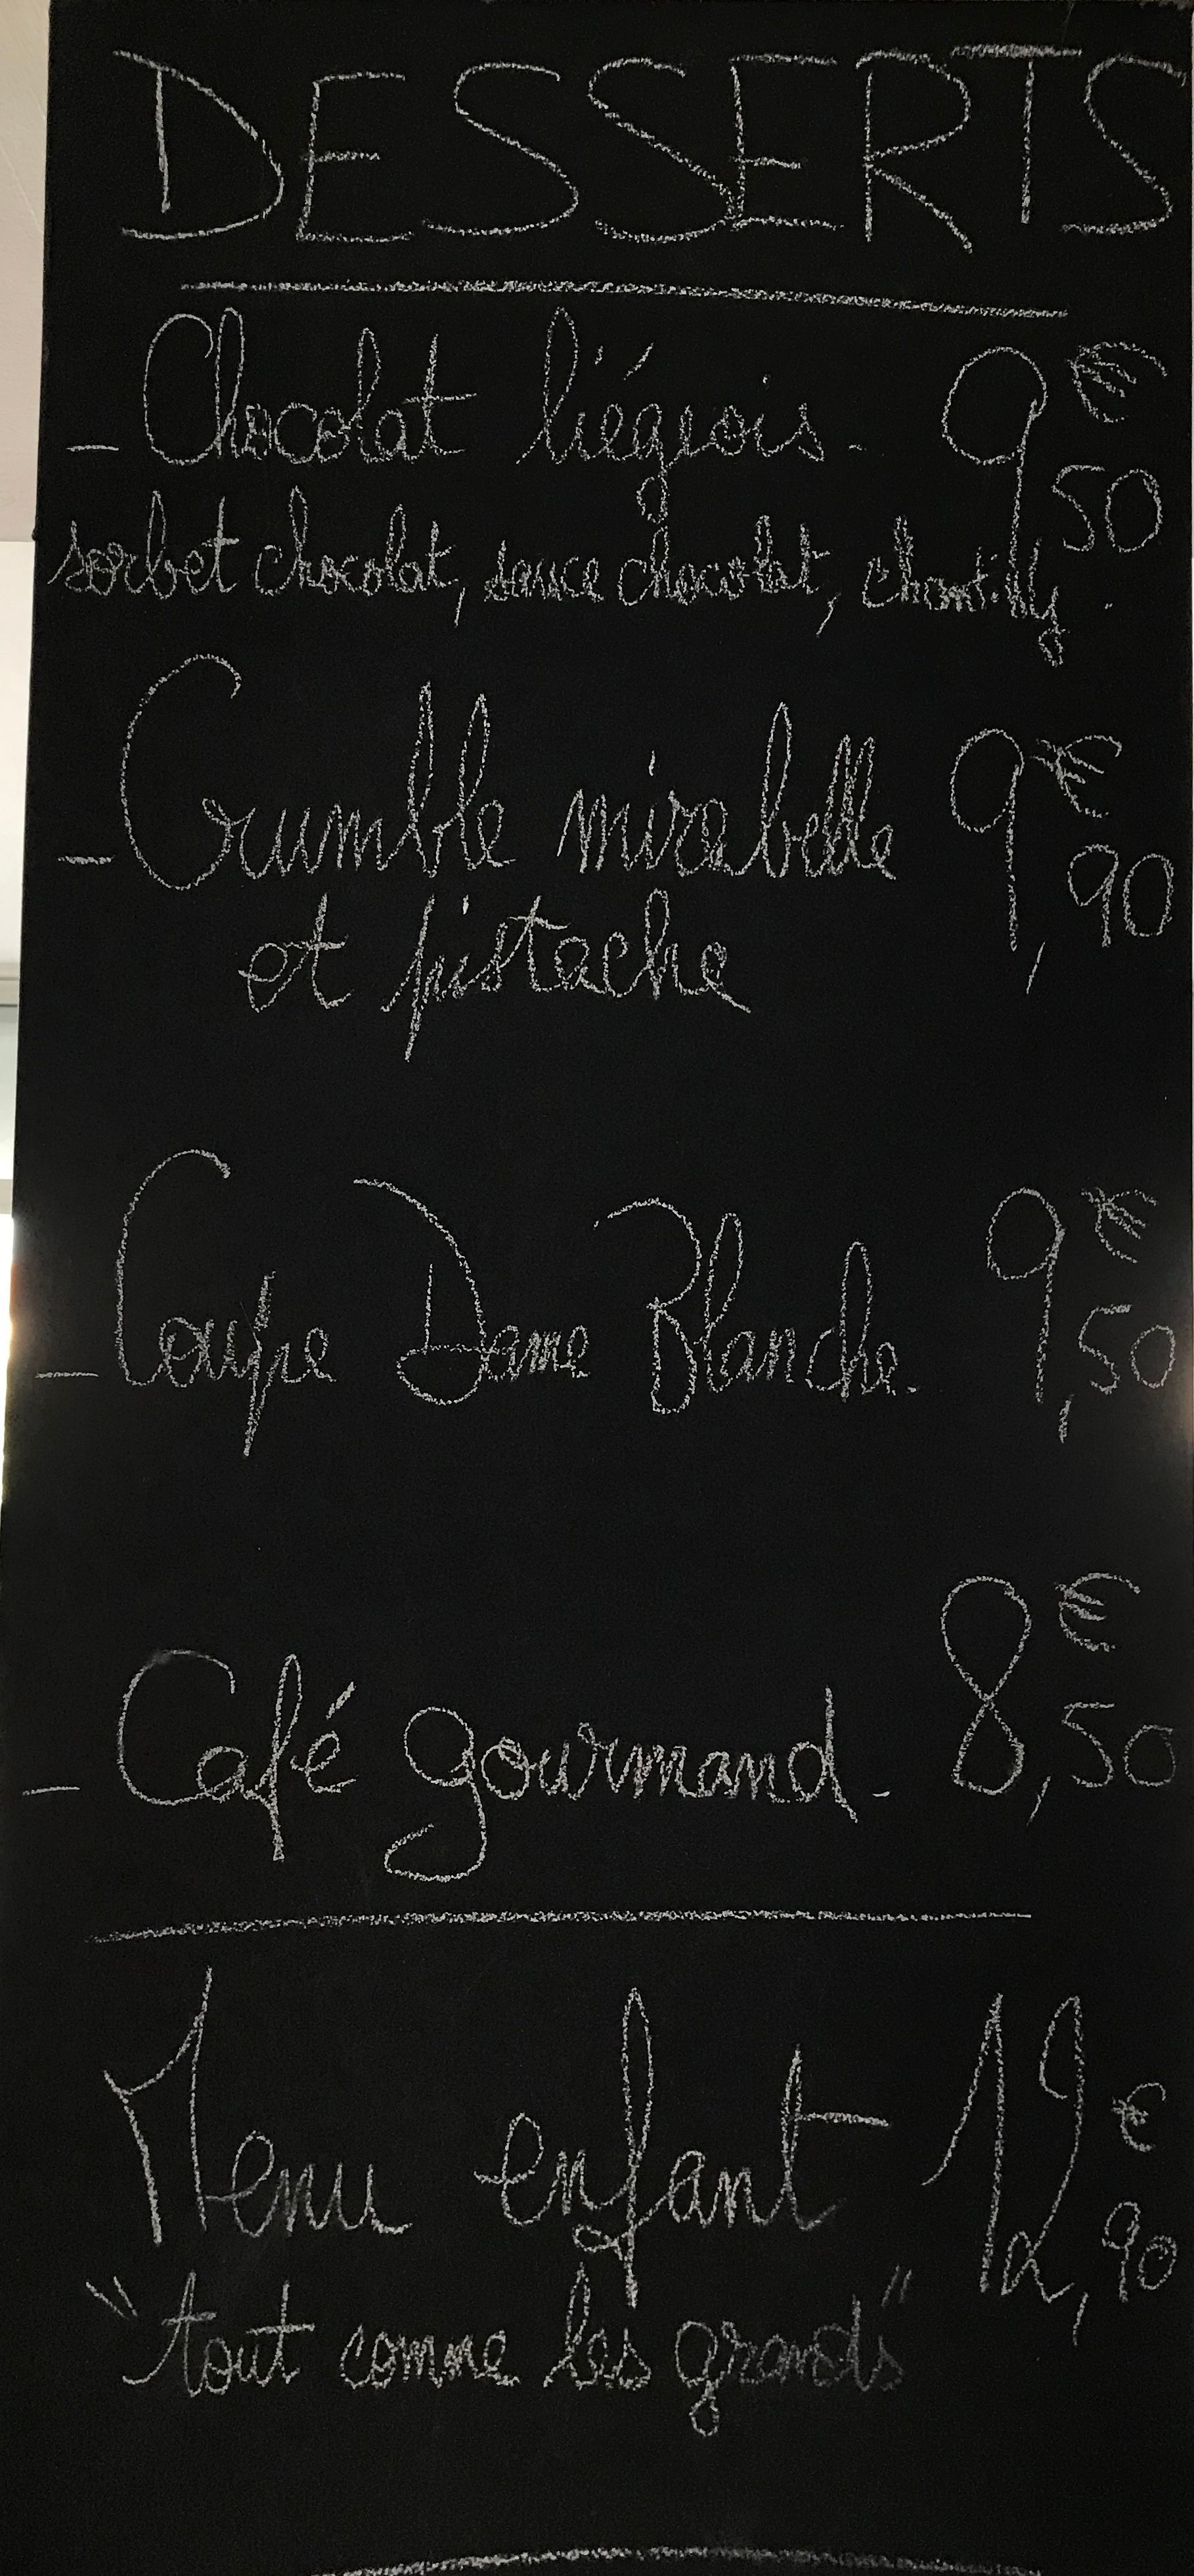 DESSERTS
- Chocolat liégeois - 9,50 €
sorbet chocolat, sauce chocolat, chantilly.
- Crumble mirabelle 9,90 €
et pistache
- Coupe Dame Blanche. 9,50 €
- Café gourmand - 8,50 €
Menu enfant 12,90 €
"tout comme les grands"